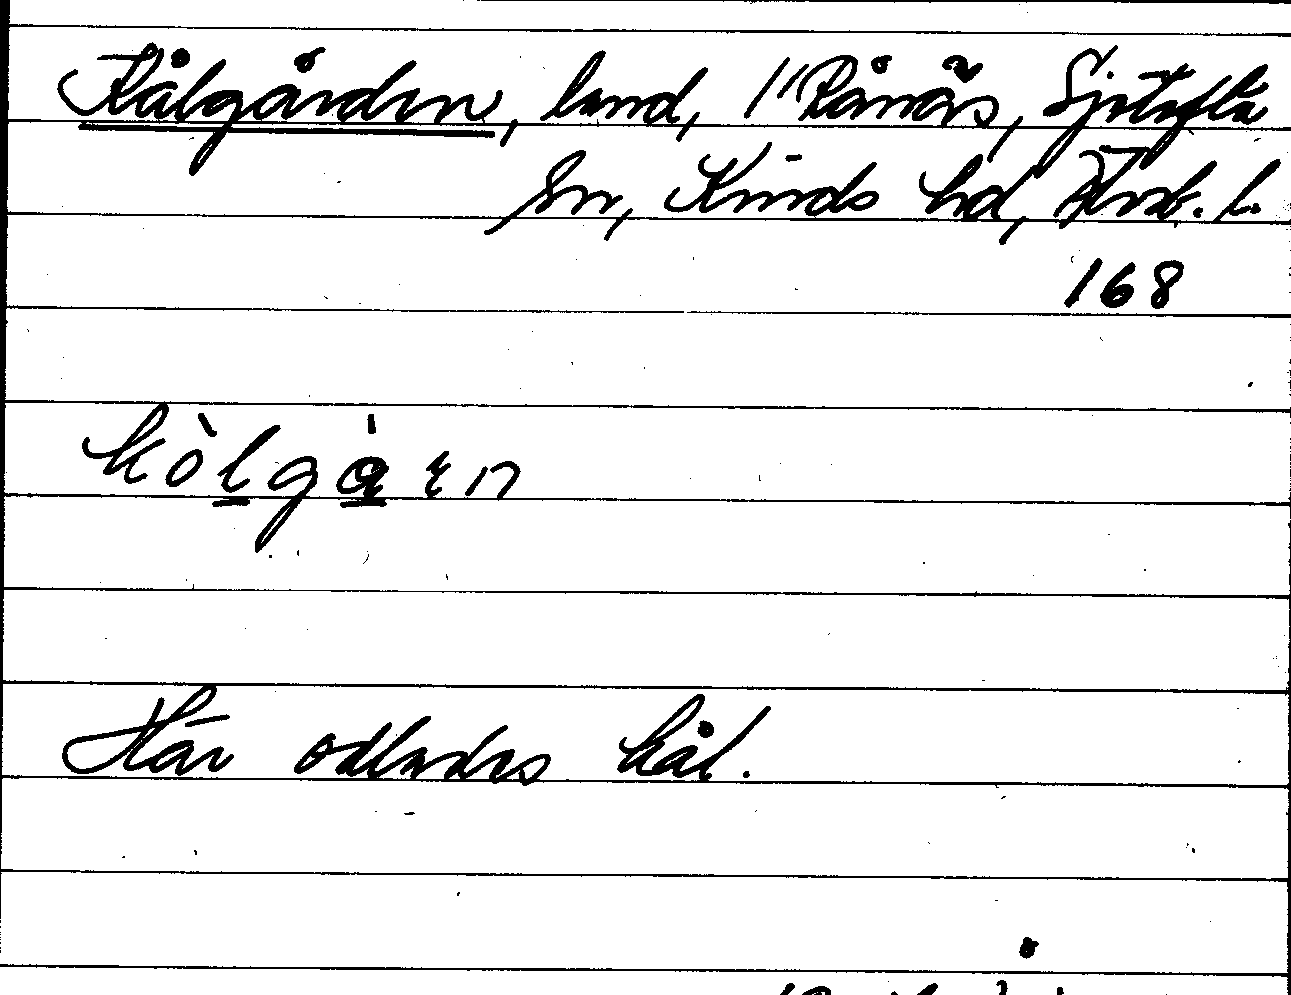 Kålgården, land, 1/1 Rånäs, Sjötofta
sn, Kinds hd, Älvsb. l.
168
kòlgàrn
Här odlades kål.